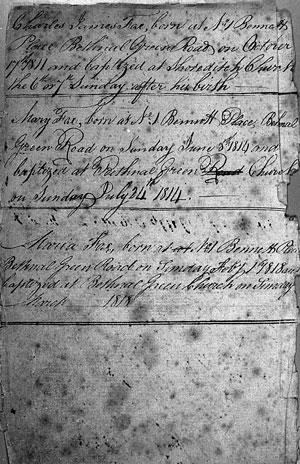 Charles James Fae, born at No 1 Bennett
Place Bethnal Green Road, on October
17th 1811 and baptized at Shoreditch Church
the 6th or 7th Sunday after his birth
Mary Fae, born at No 1 Bennett Place, Betnal
Green Road on Sunday June 5 1814 and
baptized at Bethnal Green Church
on Sunday July 24th 1814.
Maria Fae, born at No 1 Bennett Place
Bethnal Green Road on Sunday 1st 1818 and
baptized at Bethnal Green Church on Sunday
March 1818